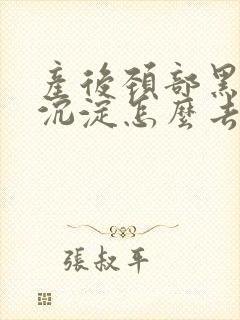 產後頸部黑
沉淀怎麼去
張叔平